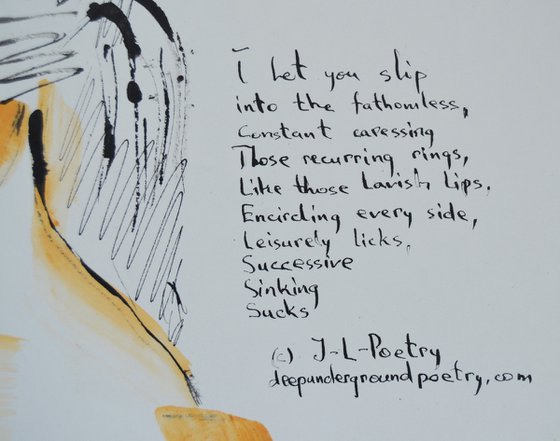 I let you slip
into the fathomless,
Constant caressing
Those recurring rings,
Like those Lavish Lips.
Encircling every side,
Leisurely licks,
Successive
Sinking
Sucks
(c) J-L-Poetry
deepundergroundpoetry.com